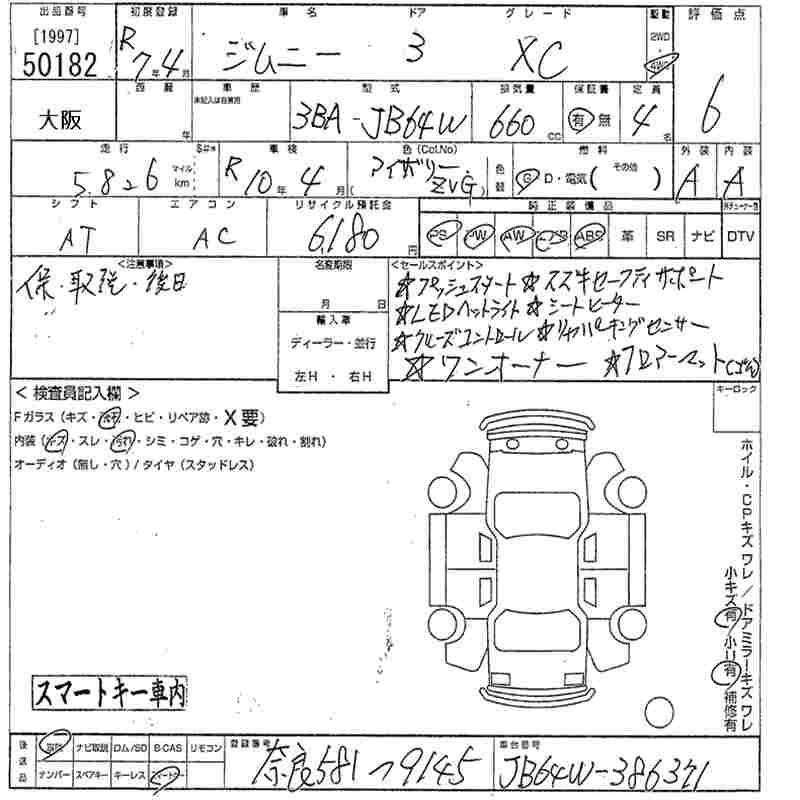 出品番号 初度登録 車名 ドア グレード 駆動 評価点
[1997] 50182 R 7年4月 ジムニー 3 XC 2WD 4WD 6
西暦 年 車歴 未記入は自家用 型式 排気量 保証書 定員
大阪 3BA-JB64W 660 CC 有 無 4名
走行 車検 色(Col.No) 色替 燃料 外装 内装
5,826 マイル km R10年4月 アイボリー (ZVG) G・D・電気( その他 ) A A
シフト エアコン リサイクル預託金 純正装備品
AT AC 6,180円 PS PW AW ABS 革 SR ナビ DTV
<注意事項> 名変期限 <セールスポイント>
保・取説・後日 月 日 ☆プッシュスタート ☆スズキセーフティサポート
☆LEDヘットライト ☆シートヒーター
輸入車 ☆クルーズコントロール ☆リヤパーキングセンサー
ディーラー・並行 ☆ワンオーナー ☆フロアーマット(ゴム)
左H ・ 右H
キーロック
< 検査員記入欄 >
Fガラス(キズ・汚れ・ヒビ・リペア跡・X要)
内装(キズ・スレ・汚れ・シミ・コゲ・穴・キレ・破れ・割れ)
オーディオ(無し・穴)/タイヤ(スタッドレス)
ホイル・CPキズワレ/ドアミラーキズワレ
小キズ有 小U有 補修有
スマートキー車内
後送品 取説 ナビ取説 ロム/SD B-CAS リモコン 登録番号 車台番号
ナンバー スペアキー キーレス スマートキー 奈良581 つ9145 JB64W-386371